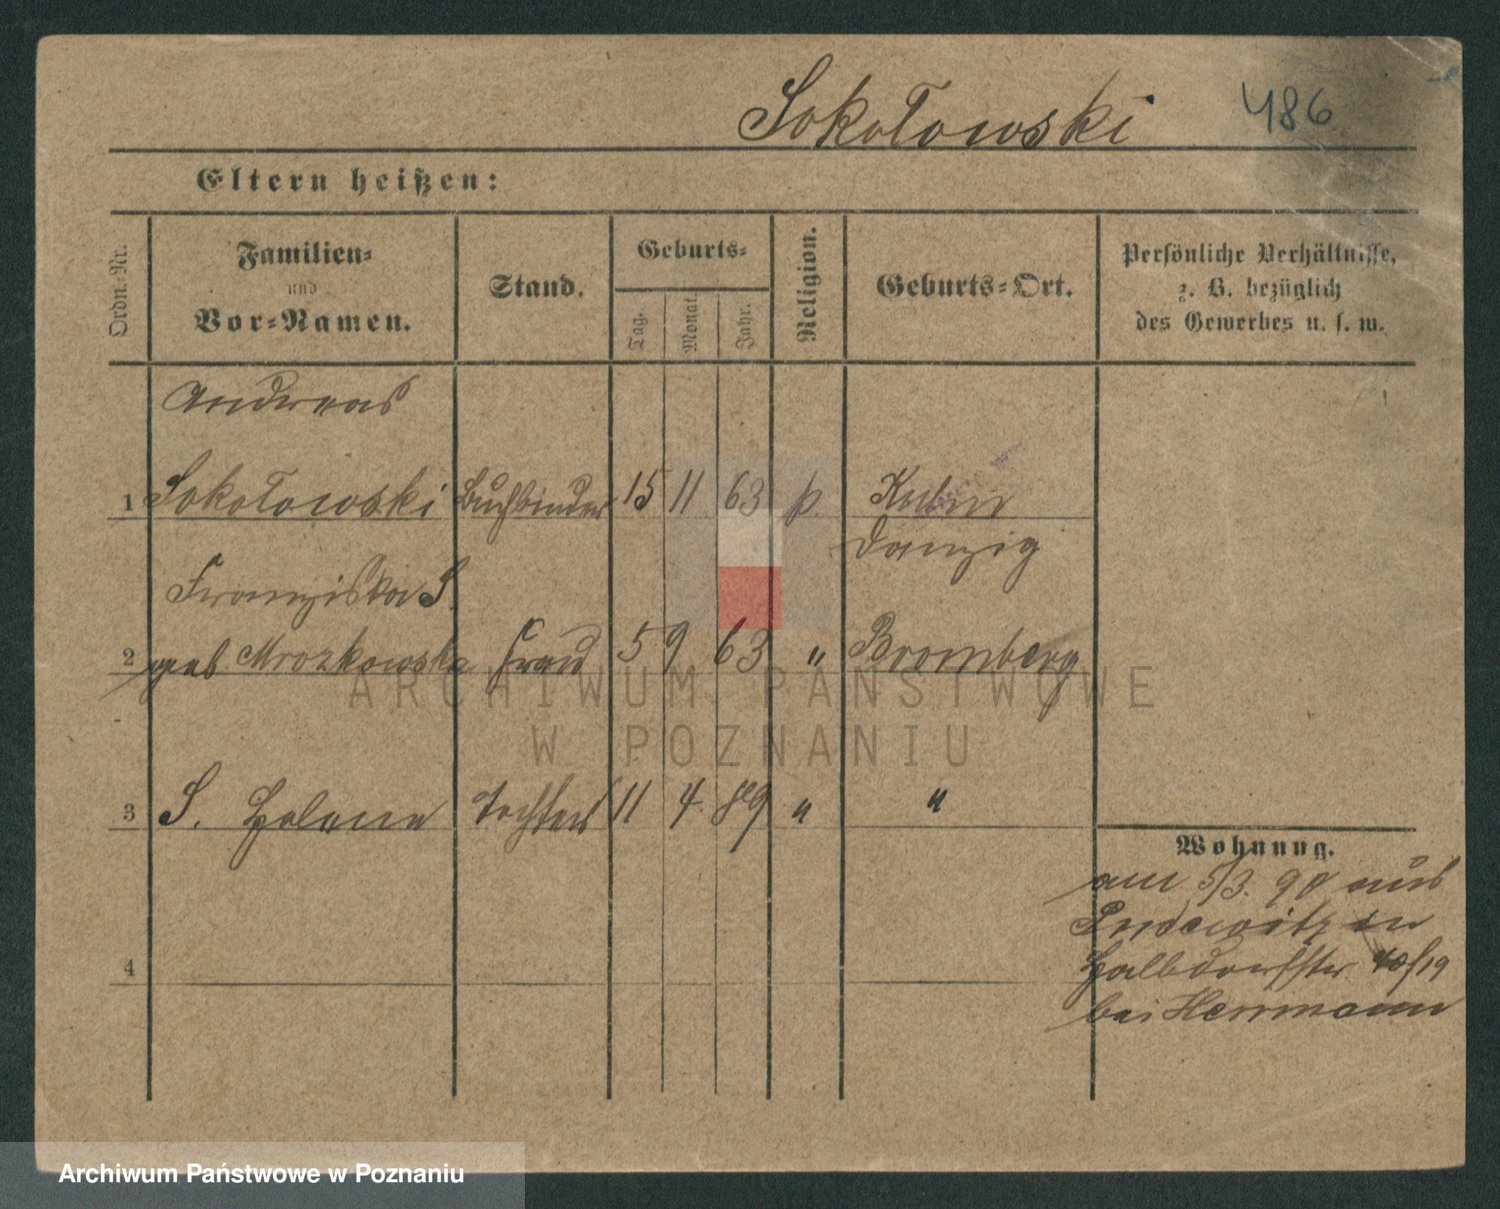 Sokołowski 486
Eltern heißen:
Ordn.-Nr.
Familien-
und
Vor-Namen.
Stand.
Geburts-
Tag.
Monat.
Jahr.
Religion.
Geburts-Ort.
Persönliche Verhältnisse,
z. B. bezüglich
des Gewerbes u. s. w.
Andreas
1 Sokołowski Buchbinder 15 11 63 k.
Danzig
Franziska S.
2 geb Mrozkowska Frau 5 9 63 " Bromberg
3 S. Helene Tochter 11 4 89 " "
Wohnung.
am 5/3. 90 aus
in
Halbdorfstr. /19
bei Herrmann
4
ARCHIWUM PAŃSTWOWE
W POZNANIU
Archiwum Państwowe w Poznaniu